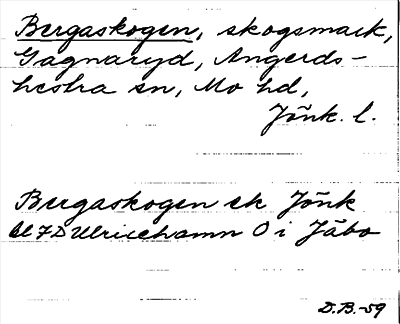 Bergaskogen, skogsmark,
Gagnaryd, Angerds-
hestra sn, Mo hd,
Jönk. l.
Bergaskogen ek Jönk
bl 7D Ulricehamn O i Jäbo
D.B.-59